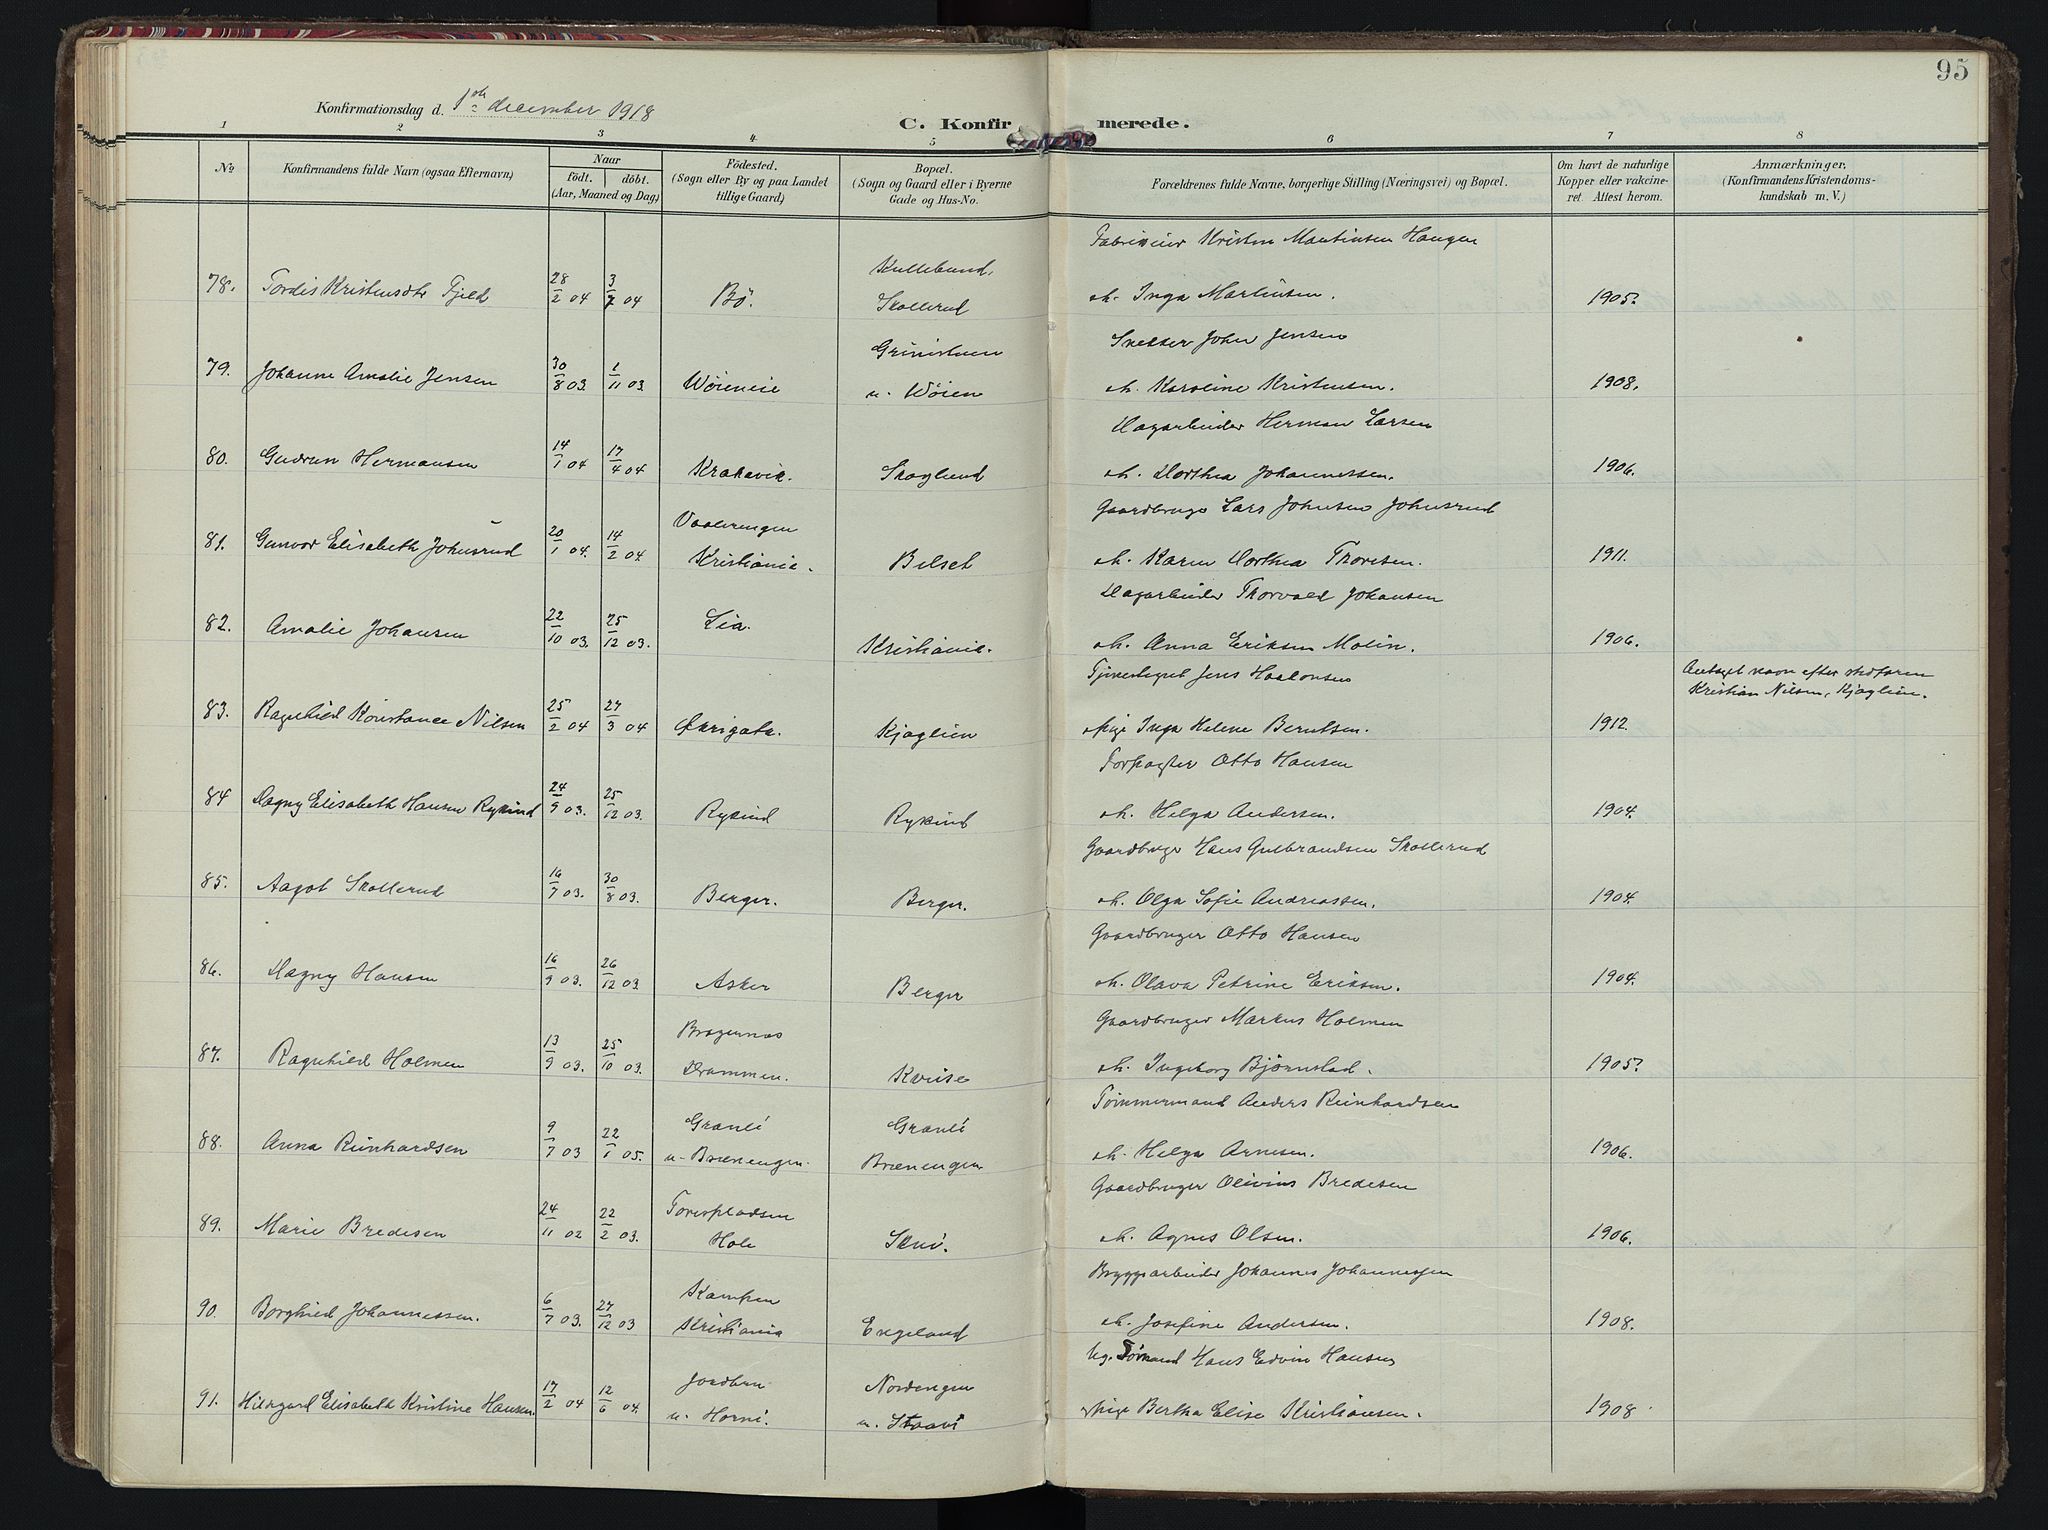 95
Konfirmationsdag d. 1ste december 1918
C. Konfirmerede.
1 2 3 4 5 6 7 8
No
Konfirmandens fulde Navn (ogsaa Efternavn)
Naar
født. døbt.
(Aar, Maaned og Dag)
Födested.
(Sogn eller By og paa Landet
tillige Gaard)
Bopæl.
(Sogn og Gaard eller i Byerne
Gade og Hus-No.
Forældrenes fulde Navne, borgerlige Stilling (Næringsvei) og Bopæl.
Om havt de naturlige
Kopper eller vakcine-
ret. Attest herom.
Anmærkninger,
(Konfirmandens Kristendoms-
kundskab m. V.)
Kristen Martinsen Haugen
78. Tordis Kristensdtr Fjeld 28/2 04 3/7 04 Bö. Kullebund, Skollerud h. Inga Martinsen. 1905?
John Jensen
79. Johanne Amalie Jensen 30/8 03. 1/11 03. Wöieneie u. Wöien h. Karoline Kristensen. 1908.
Dagarbeider Herman Larsen
80. Gudrun Hermansen 14/1 04 17/4 04 Skoglund h. Dorthea Johannessen. 1906.
Gaardbruge Lars Johnsen Johnsrud
81. Gunvor Elisabeth Johnsrud 20/1 04. 14/2 04. Vaalerengen Kristiania. Belset h. Karen Dorthea Thoresen. 1911.
Dagarbeider Thorvald Johansen
82. Amalie Johansen 22/10 03. 25/12 03. Lia. Kristiania. h. Anna Eriksen Molin. 1906.
Tjenestegut Jens Haakonsen
Antaget navn efter stedfaren
Kristian Nilsen, Kjaglien.
83. Ragnhild Konstance Nilsen 25/2 04 27/3 04 Kjaglien pige Inga Helene Berntsen. 1912.
Forpagter Otto Hansen
84 Dagny Elisabeth Hansen Rykind 24/9 03. 25/12 03. Rykind Rykind h. Helga Andersen. 1904.
Gaardbruge Hans Gulbrandsen Skollerud
85. Aagot Skollerud 16/7 03. 30/8 03. Berger. Berger. h. Olga Sofie Andreassen. 1904.
Gaardbruger Otto Hansen
86. Dagny Hansen 16/9 03. 26/12 03. Asker Berger h. Olava Petrine Eriksen. 1904.
Gaardbruger Markus Holmen
87. Ragnhild Holmen 13/9 03. 25/10 03. Bragernæs Drammen. h. Ingeborg Bjørnstad. 1905?
Tömmermand Anders Reinhardsen
88. Anna Reinhardsen 9/7 03 22/1 05. Granli u. Brænengen. Granli Brænengen h. Helga Arnesen. 1906.
Gaardbruger Olivius Bredesen
89. Marie Bredesen 24/11 02 22/2 03. Hole Skui. h. Agnes Olsen. 1906.
Bryggearbeider Johannes Johannessen
90. Borghild Johannessen. 6/7 03. 27/12 03 Kampen Kristiania Engeland h. Josefine Andersen. 1908.
Ug. Sömand Hans Edvin Hansen
91. Hildegard Elisabeth Kristine Hansen. 17/2 04 12/6 04. Jordbru u. Horni. Nordengen u. Staavi pige Bertha Elise Kristiansen. 1908